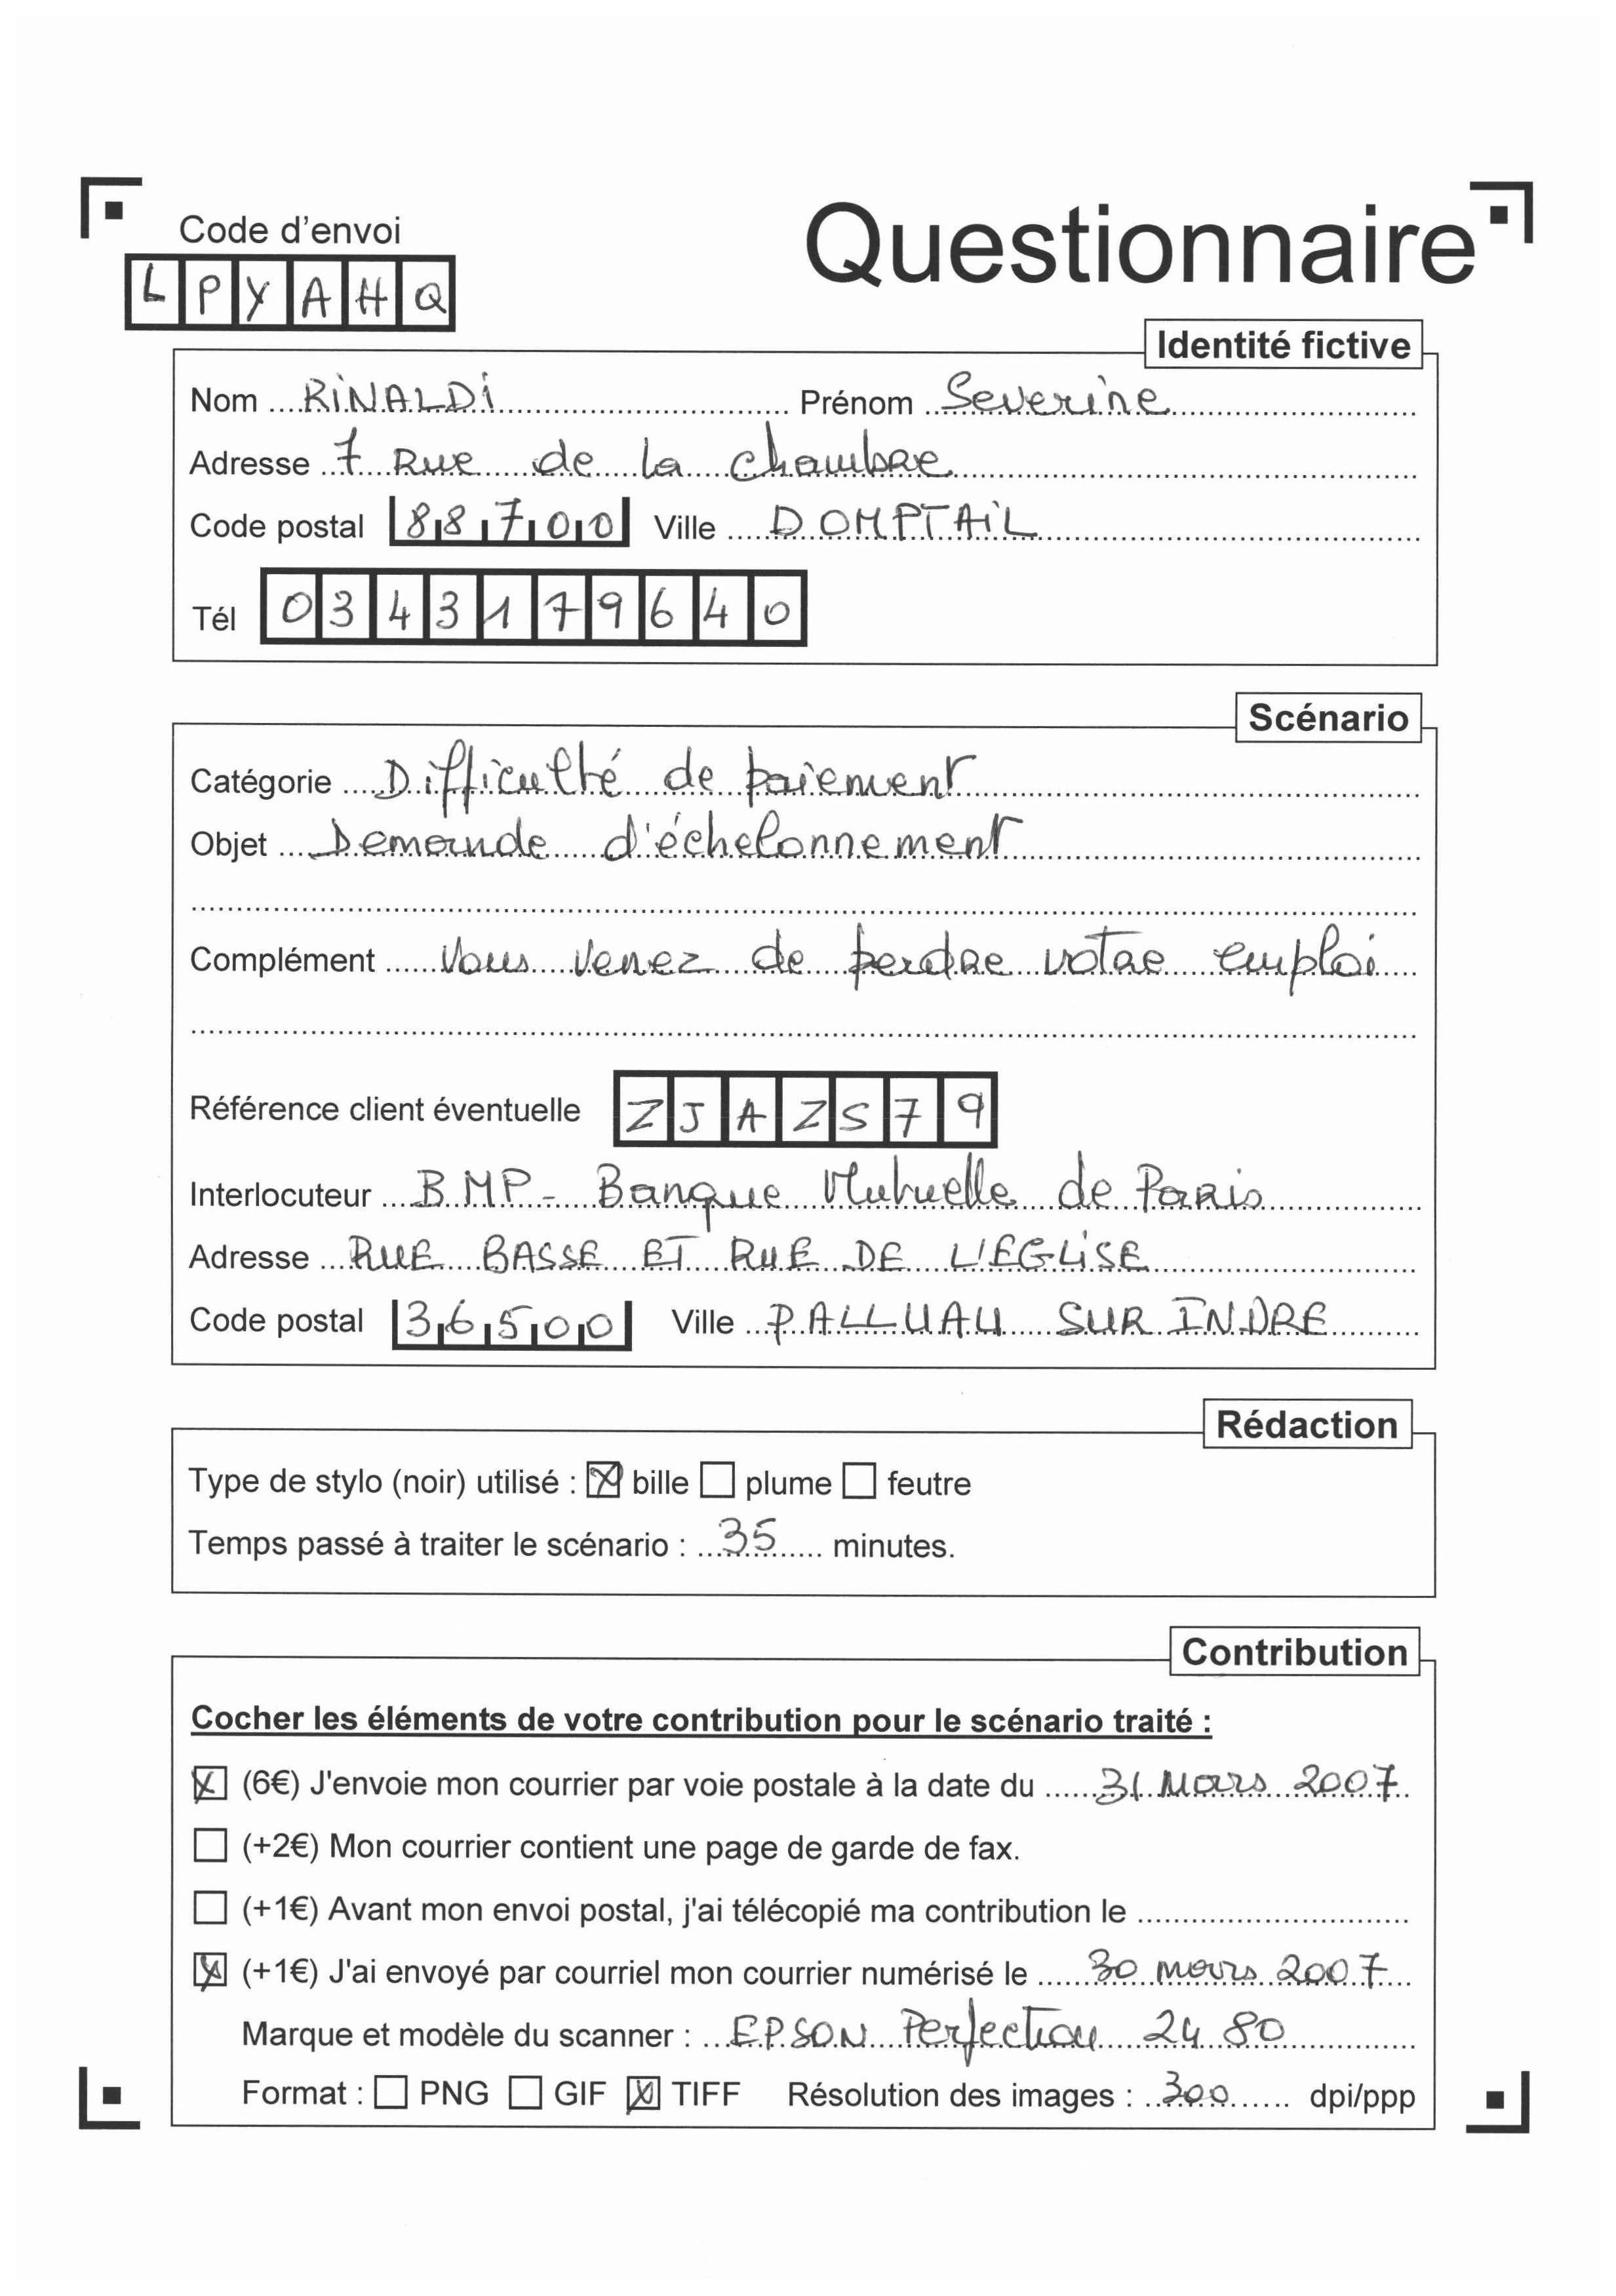 Code d'envoi
Questionnaire
LPYAHQ
Identité fictive
Nom RINALDI Prénom Severine
Adresse 7 Rue de la chambre
Code postal 88700 Ville DOMPTAIL
Tél 0343179640
Scénario
Catégorie Difficulté de paiement
Objet Demande d'échelonnement
Complément Vous venez de perdre votre emploi
Référence client éventuelle ZJAZS79
Interlocuteur BMP - Banque Mutuelle de Paris
Adresse RUE BASSE ET RUE DE L'EGLISE
Code postal 36500 Ville PALLUAU SUR INDRE
Rédaction
Type de stylo (noir) utilisé : ☒ bille ☐ plume ☐ feutre
Temps passé à traiter le scénario : 35 minutes.
Contribution
Cocher les éléments de votre contribution pour le scénario traité :
☒ (6€) J'envoie mon courrier par voie postale à la date du 31 Mars 2007
☐ (+2€) Mon courrier contient une page de garde de fax.
☐ (+1€) Avant mon envoi postal, j'ai télécopié ma contribution le
☒ (+1€) J'ai envoyé par courriel mon courrier numérisé le 30 mars 2007
Marque et modèle du scanner : EPSON Perfection 2480
Format : ☐ PNG ☐ GIF ☒ TIFF Résolution des images : 300 dpi/ppp